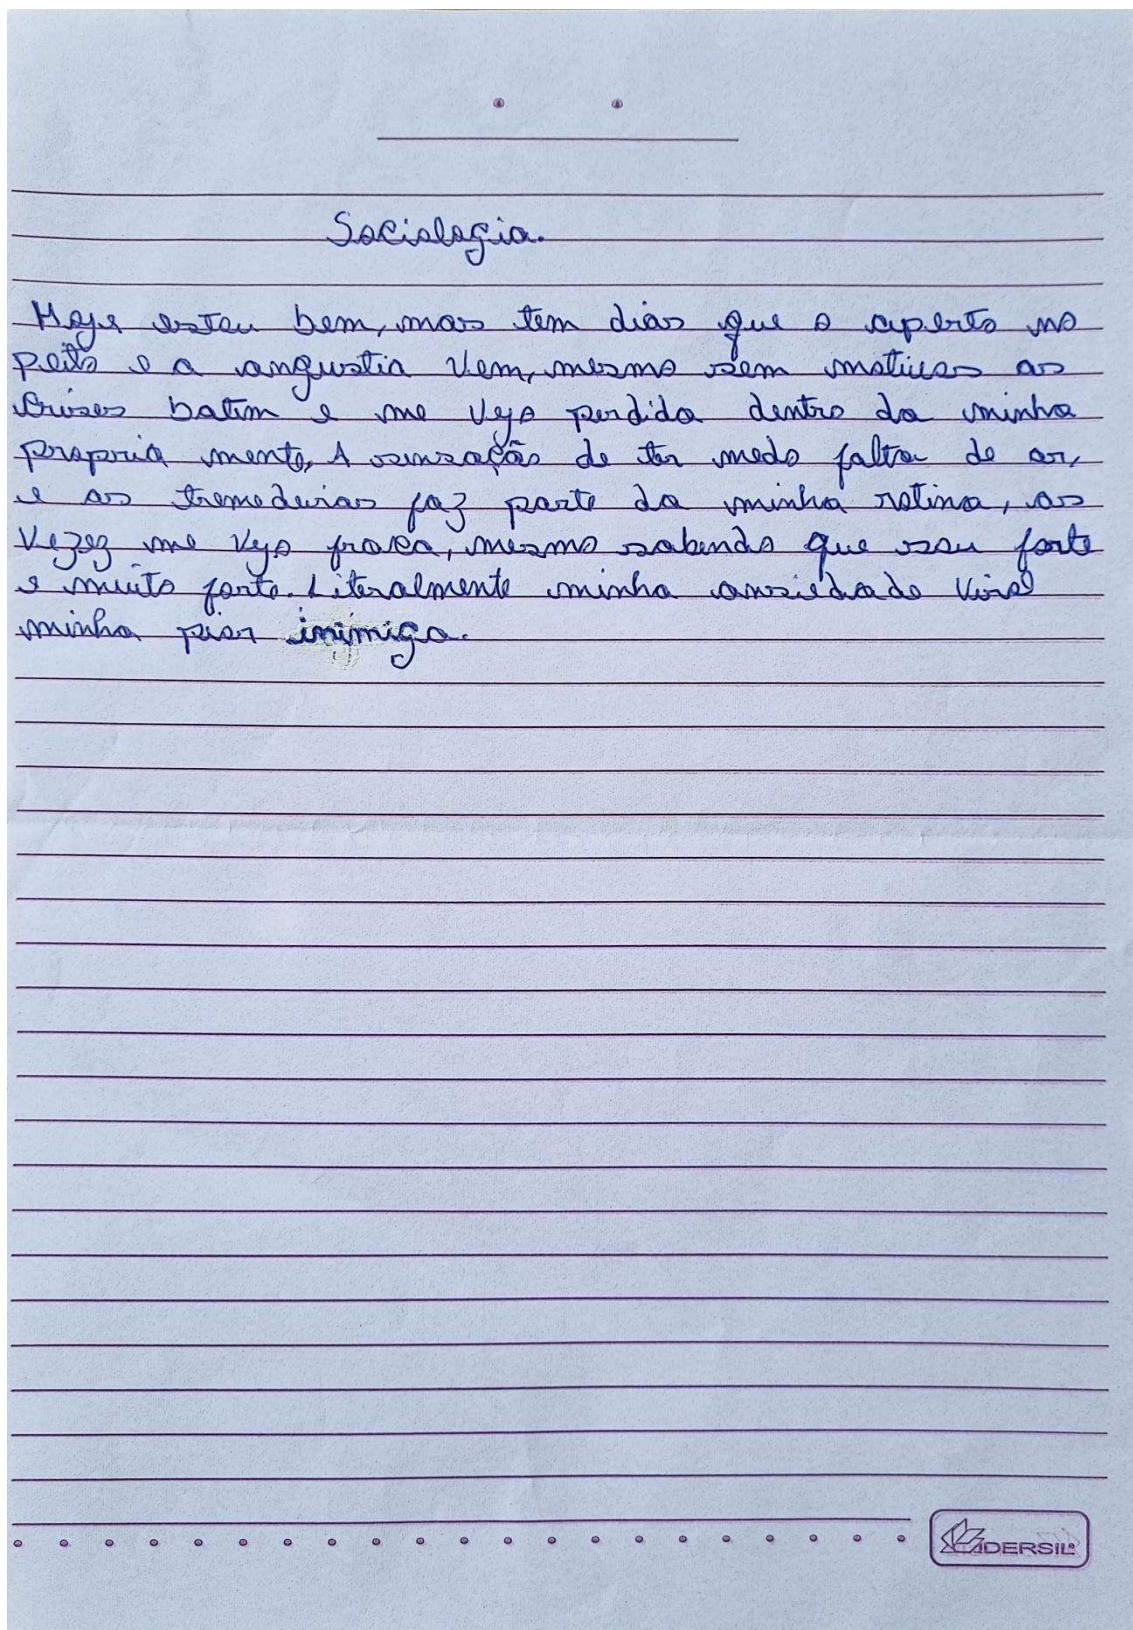 Sociologia.
Hoje estou bem, mas tem dias que o aperto no
peito e a angustia vem, mesmo sem motivos as
crises batem e me vejo perdida dentro da minha
propria mente, A sensação de ter medo falta de ar,
e as tremedeiras faz parte da minha rotina, as
vezez me vejo fraca, mesmo sabendo que sou forte
e muito forte. Literalmente minha ansiedade
minha pior inimiga.
CADERSIL